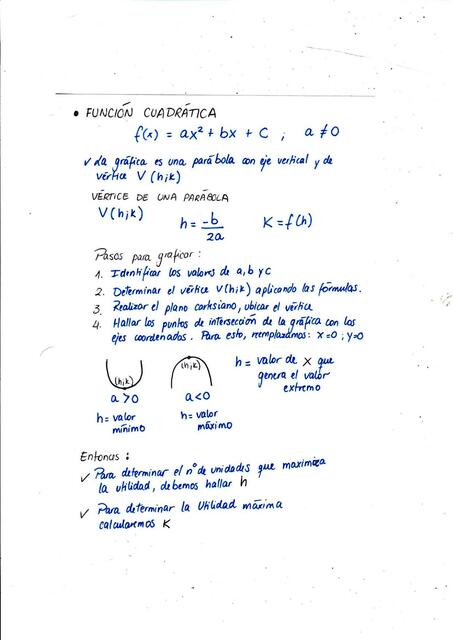 • FUNCIÓN CUADRÁTICA
f(x) = ax² + bx + C ; a ≠ 0
✓ La gráfica es una parábola con eje vertical y de
vértice V (h;k)
VÉRTICE DE UNA PARÁBOLA
V(h;k) h = -b/2a K = f(h)
Pasos para graficar:
1. Identificar los valores de a, b y c
2. Determinar el vértice V(h;k) aplicando las fórmulas.
3. Realizar el plano cartesiano, ubicar el vértice
4. Hallar los puntos de intersección de la gráfica con los
ejes coordenados. Para esto, reemplazamos: x=0 ; y=0
(h;k)
a > 0
h = valor
mínimo
(h;k)
a < 0
h = valor
máximo
h = valor de x que
genera el valor
extremo
Entonces :
✓ Para determinar el nº de unidades que maximiza
la utilidad, debemos hallar h
✓ Para determinar la Utilidad máxima
calcularemos K